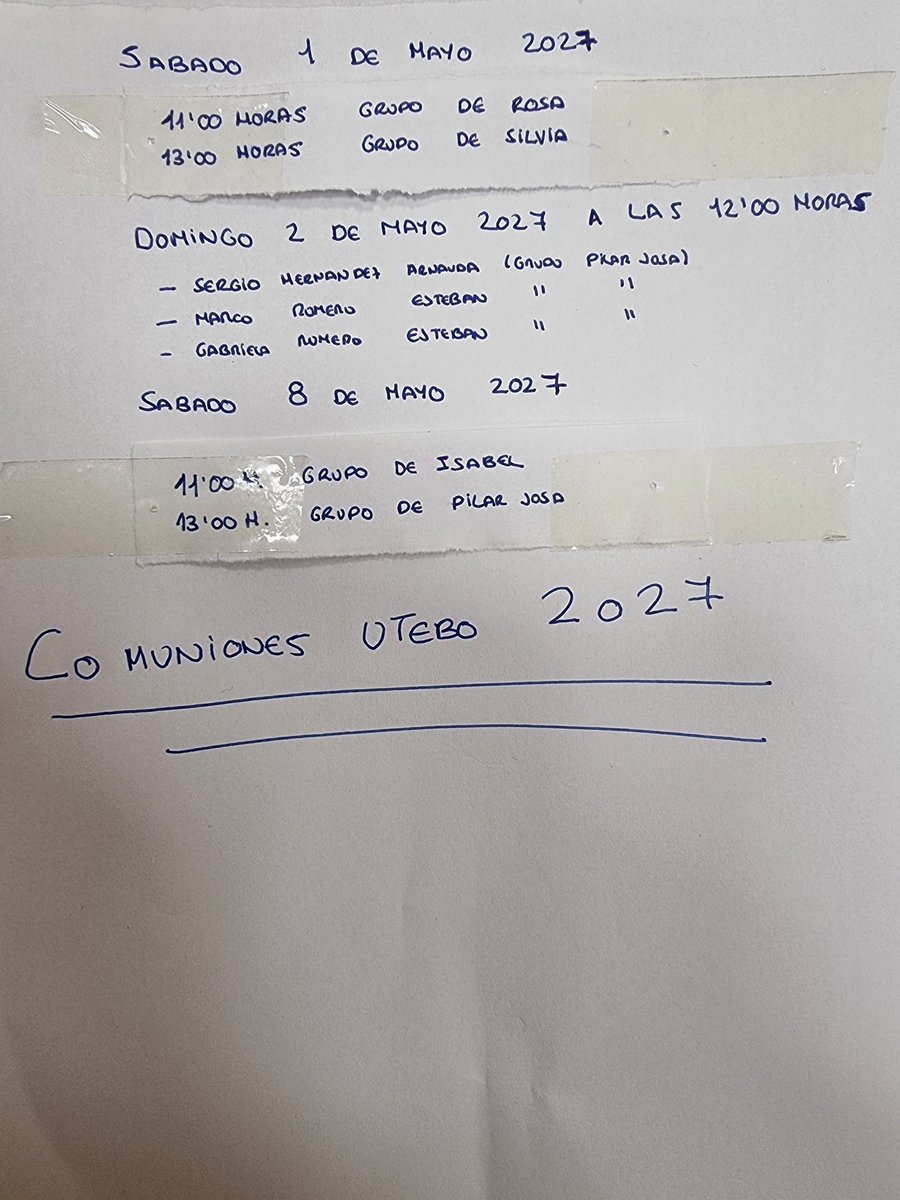 SABADO 1 DE MAYO 2027
11'00 HORAS GRUPO DE ROSA
13'00 HORAS GRUPO DE SILVIA
DOMINGO 2 DE MAYO 2027 A LAS 12'00 HORAS
- SERGIO HERNANDEZ ARNAUDA (GRUPO PILAR JOSA)
- MARCO ROMERO ESTEBAN " "
- GABRIELA ROMERO ESTEBAN " "
SABADO 8 DE MAYO 2027
11'00 H. GRUPO DE ISABEL
13'00 H. GRUPO DE PILAR JOSA
COMUNIONES UTEBO 2027